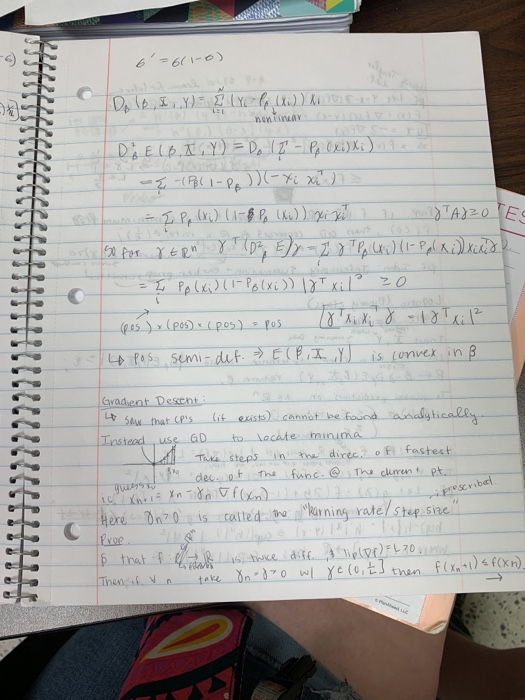 σ' = σ(1-σ)
D_β(β, X, Y) = Σ_{i=1}^N (Y_i - P_β(x_i)) x_i
nonlinear
D²_β E(β, X, Y) = D_β (Σ_i - P_β(x_i) x_i)
= Σ_i -(P_β(1-P_β))(-x_i x_i^T)
= Σ_i P_β(x_i)(1- P_β(x_i)) x_i x_i^T γ^T A γ ≥ 0
so for γ ∈ R^n γ^T(D²_β E)γ = Σ_i γ^T P_β(x_i)(1-P_β(x_i)) x_i x_i^T γ
= Σ_i P_β(x_i)(1-P_β(x_i)) |γ^T x_i|² ≥ 0
(pos) × (pos) × (pos) = pos [γ^T x_i x_i γ = |γ^T x_i|²
↳ pos. semi-def. ⇒ E(β, X, Y) is convex in β
Gradient Descent:
↳ Saw that CP's (if exists) cannot be found analytically.
Instead use GD to locate minima
Take steps in the direc. of fastest
dec. of the func. @ the current pt.
guess x_0
ie. x_{n+1} = x_n - γ_n ∇f(x_n) prescribed.
Here γ_n > 0 is called the "learning rate/step size"
Prop.
that f: R is twice diff, & lip(∇f) = L ≥ 0.
Then if ∀ n take γ_n = γ > 0 w/ γ ∈ (0, 1/L] then f(x_{n+1}) ≤ f(x_n).
→